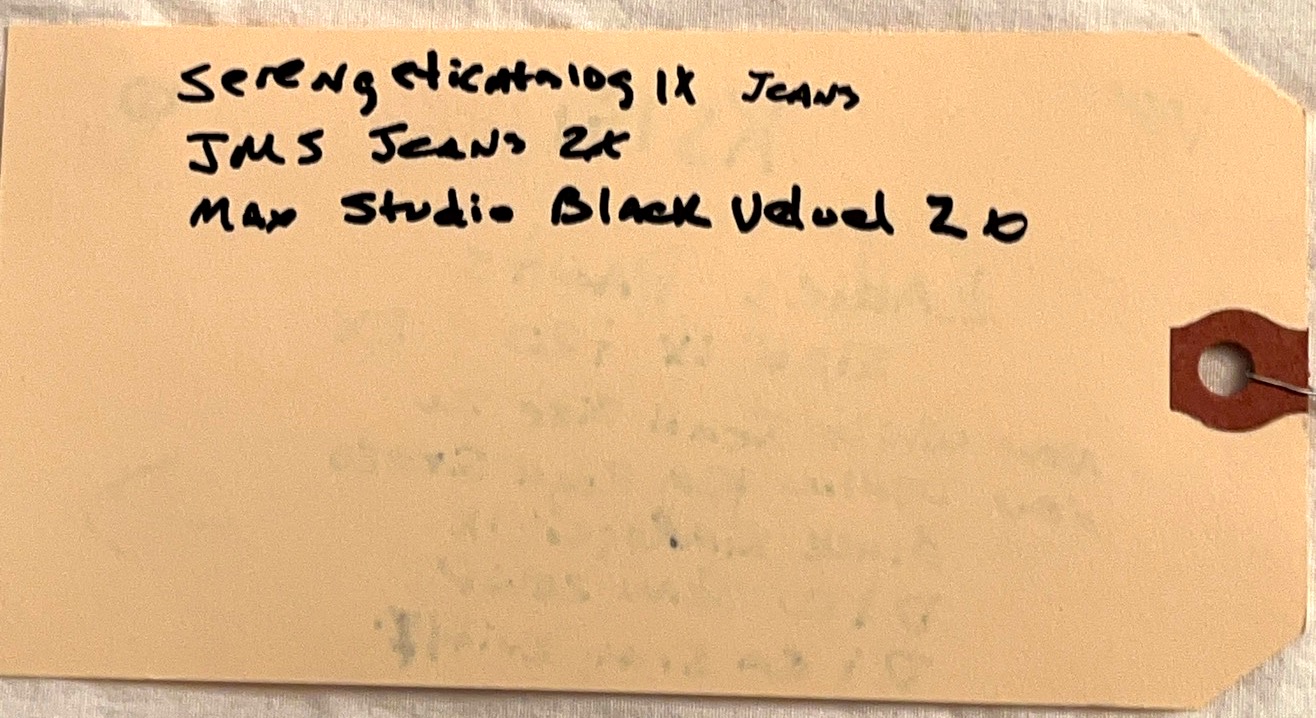 Serengeticatalog 1X Jeans
JMS Jeans 2X
Max Studio Black Velvet 2X